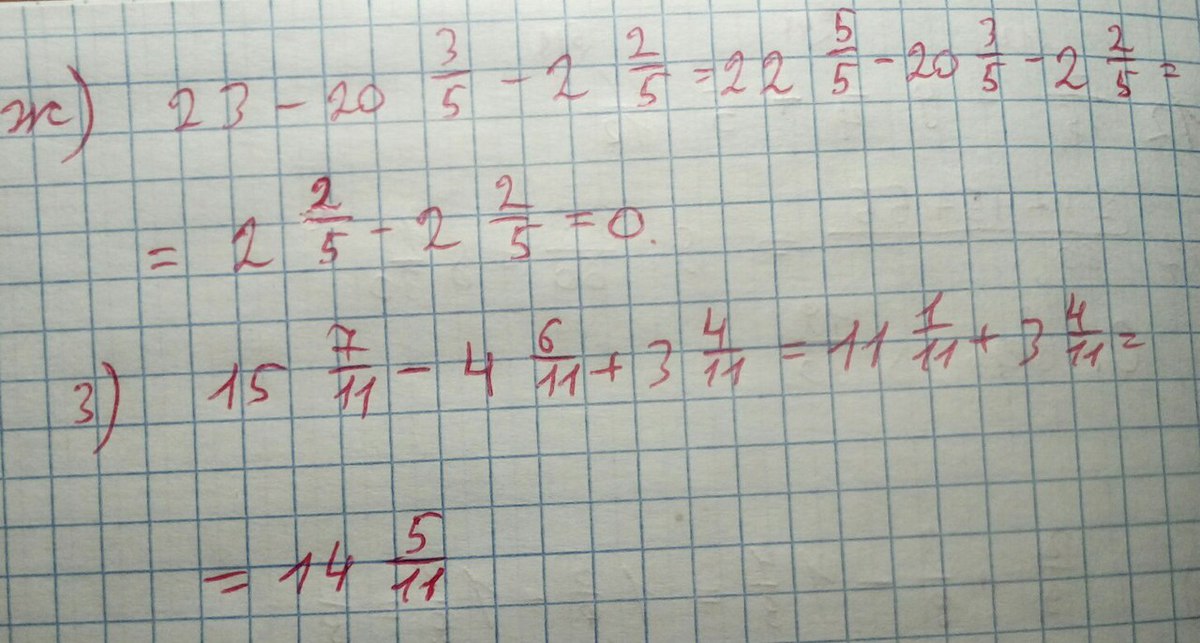 ж) 23 - 20 3/5 - 2 2/5 = 22 5/5 - 20 3/5 - 2 2/5 =
= 2 2/5 - 2 2/5 = 0.
з) 15 7/11 - 4 6/11 + 3 4/11 = 11 1/11 + 3 4/11 =
= 14 5/11